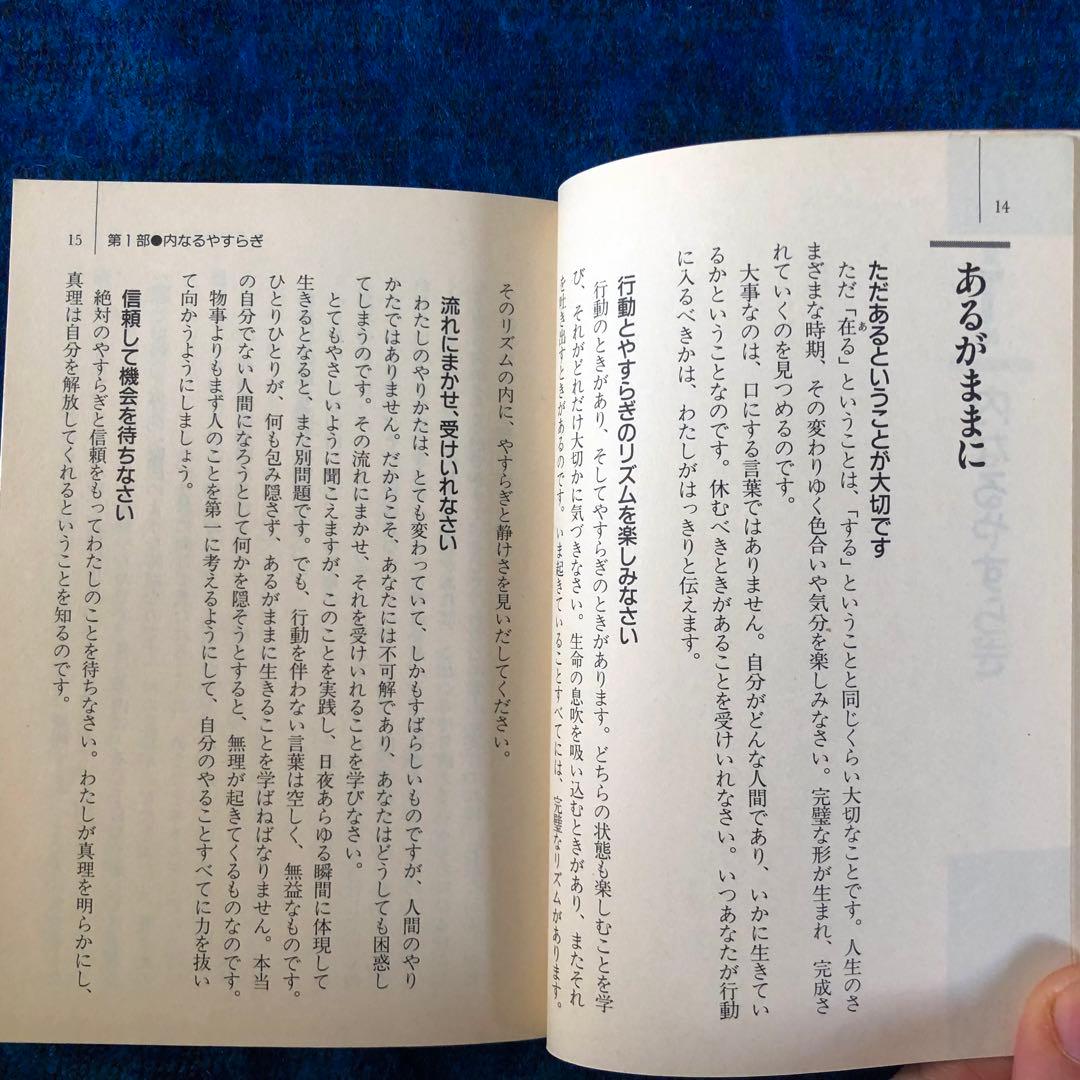 14
あるがままに
ただあるということが大切です
ただ「在る」ということは、「する」ということと同じくらい大切なことです。人生のさ
まざまな時期、その変わりゆく色合いや気分を楽しみなさい。完璧な形が生まれ、完成さ
れていくのを見つめるのです。
大事なのは、口にする言葉ではありません。自分がどんな人間であり、いかに生きてい
るかということなのです。休むべきときがあることを受けいれなさい。いつあなたが行動
に入るべきかは、わたしがはっきりと伝えます。
行動とやすらぎのリズムを楽しみなさい
行動のときがあり、そしてやすらぎのときがあります。どちらの状態も楽しむことを学
び、それがどれだけ大切かに気づきなさい。生命の息吹を吸い込むときがあり、またそれ
を吐き出すときがあるのです。いま起きていることすべてには、完璧なリズムがあります。
15
第1部●内なるやすらぎ
そのリズムの内に、やすらぎと静けさを見いだしてください。
流れにまかせ、受けいれなさい
わたしのやりかたは、とても変わっていて、しかもすばらしいものですが、人間のやり
かたではありません。だからこそ、あなたには不可解であり、あなたはどうしても困惑し
てしまうのです。その流れにまかせ、それを受けいれることを学びなさい。
とてもやさしいように聞こえますが、このことを実践し、日夜あらゆる瞬間に体現して
生きるとなると、また別問題です。でも、行動を伴わない言葉は空しく、無益なものです。
ひとりひとりが、何も包み隠さず、あるがままに生きることを学ばねばなりません。本当
の自分でない人間になろうとして何かを隠そうとすると、無理が起きてくるものなのです。
物事よりもまず人のことを第一に考えるようにして、自分のやることすべてに力を抜い
て向かうようにしましょう。
信頼して機会を待ちなさい
絶対のやすらぎと信頼をもってわたしのことを待ちなさい。わたしが真理を明らかにし、
真理は自分を解放してくれるということを知るのです。